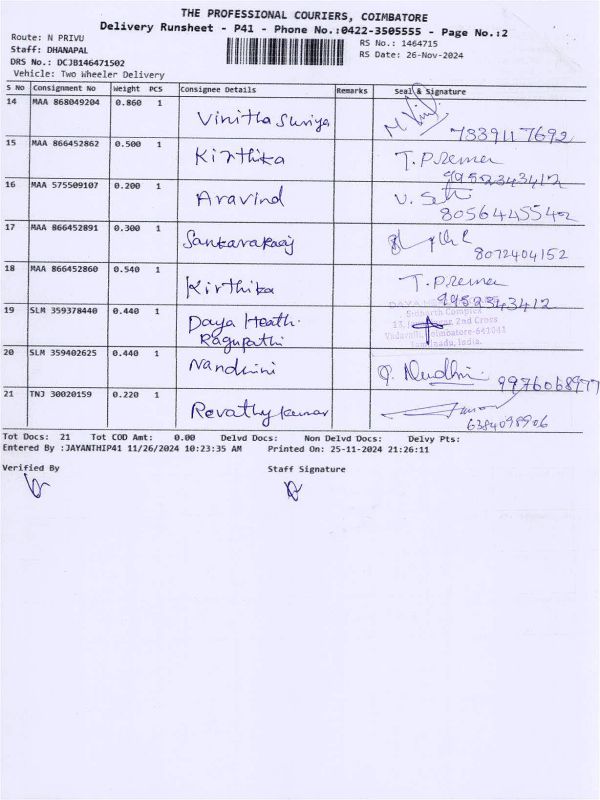 THE PROFESSIONAL COURIERS, COIMBATORE
Delivery Runsheet - P41 - Phone No.:0422-3505555 - Page No.:2
Route: N PRIVU
RS No.: 1464715
Staff: DHANAPAL
RS Date: 26-Nov-2024
DRS No.: DCJB146471502
Vehicle: Two Wheeler Delivery
S No Consignment No Weight PCS Consignee Details Remarks Seal & Signature
14 MAA 868049204 0.860 1 Vinitha Suriya
7339117692
15 MAA 866452862 0.500 1 Kirthika T. Prema
9952343412
16 MAA 575509107 0.200 1 Aravind
8056445542
17 MAA 866452891 0.300 1 Sankavaraaj
8072404152
18 MAA 866452860 0.540 1 Kirthika T. Prema
9952343412
19 SLM 359378440 0.440 1 Daya Heath
Ragupathi
Sidharth Complex
2nd Cross
Coimbatore-641041
Tamilnadu, India.
20 SLM 359402625 0.440 1 Nandhini
9976068977
21 TNJ 30020159 0.220 1 Revathy kumar
6384098906
Tot Docs: 21 Tot COD Amt: 0.00 Delvd Docs: Non Delvd Docs: Delvy Pts:
Entered By :JAYANTHIP41 11/26/2024 10:23:35 AM Printed On: 25-11-2024 21:26:11
Verified By Staff Signature